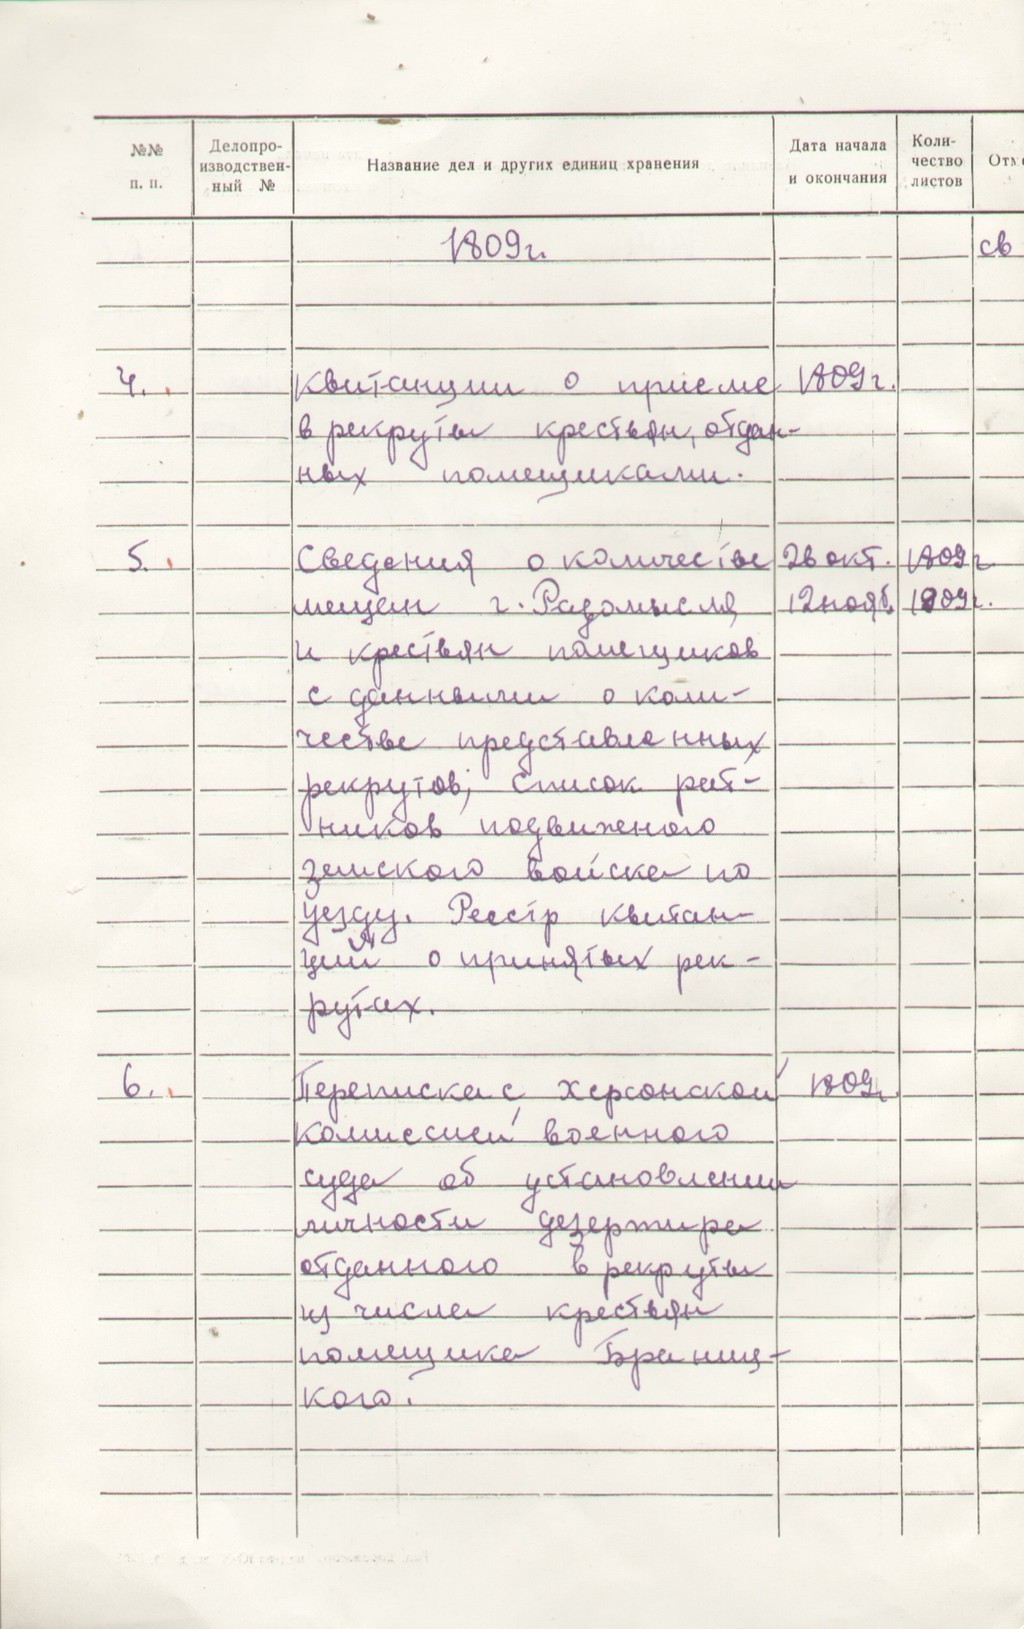 №№ п. п.
Делопро-
изводствен-
ный №
Название дел и других единиц хранения
Дата начала
и окончания
Коли-
чество
листов
1809 г. св
4. Квитанции о приеме 1809 г.
в рекруты крестьян, отдан-
ных помещиками.
5. Сведения о количестве 26 окт. 1809 г.
мещан г. Радомысля 12 нояб. 1809 г.
и крестьян помещиков
с данными о коли-
честве представленных
рекрутов; список рат-
ников подвижного
земского войска по
уезду. Реестр квитан-
ций о принятых рек-
рутах.
6. Переписка с Херсонской 1809 г.
комиссией военного
суда об установлении
личности дезертира
отданного в рекруты
из числа крестьян
помещика Браниц-
кого.